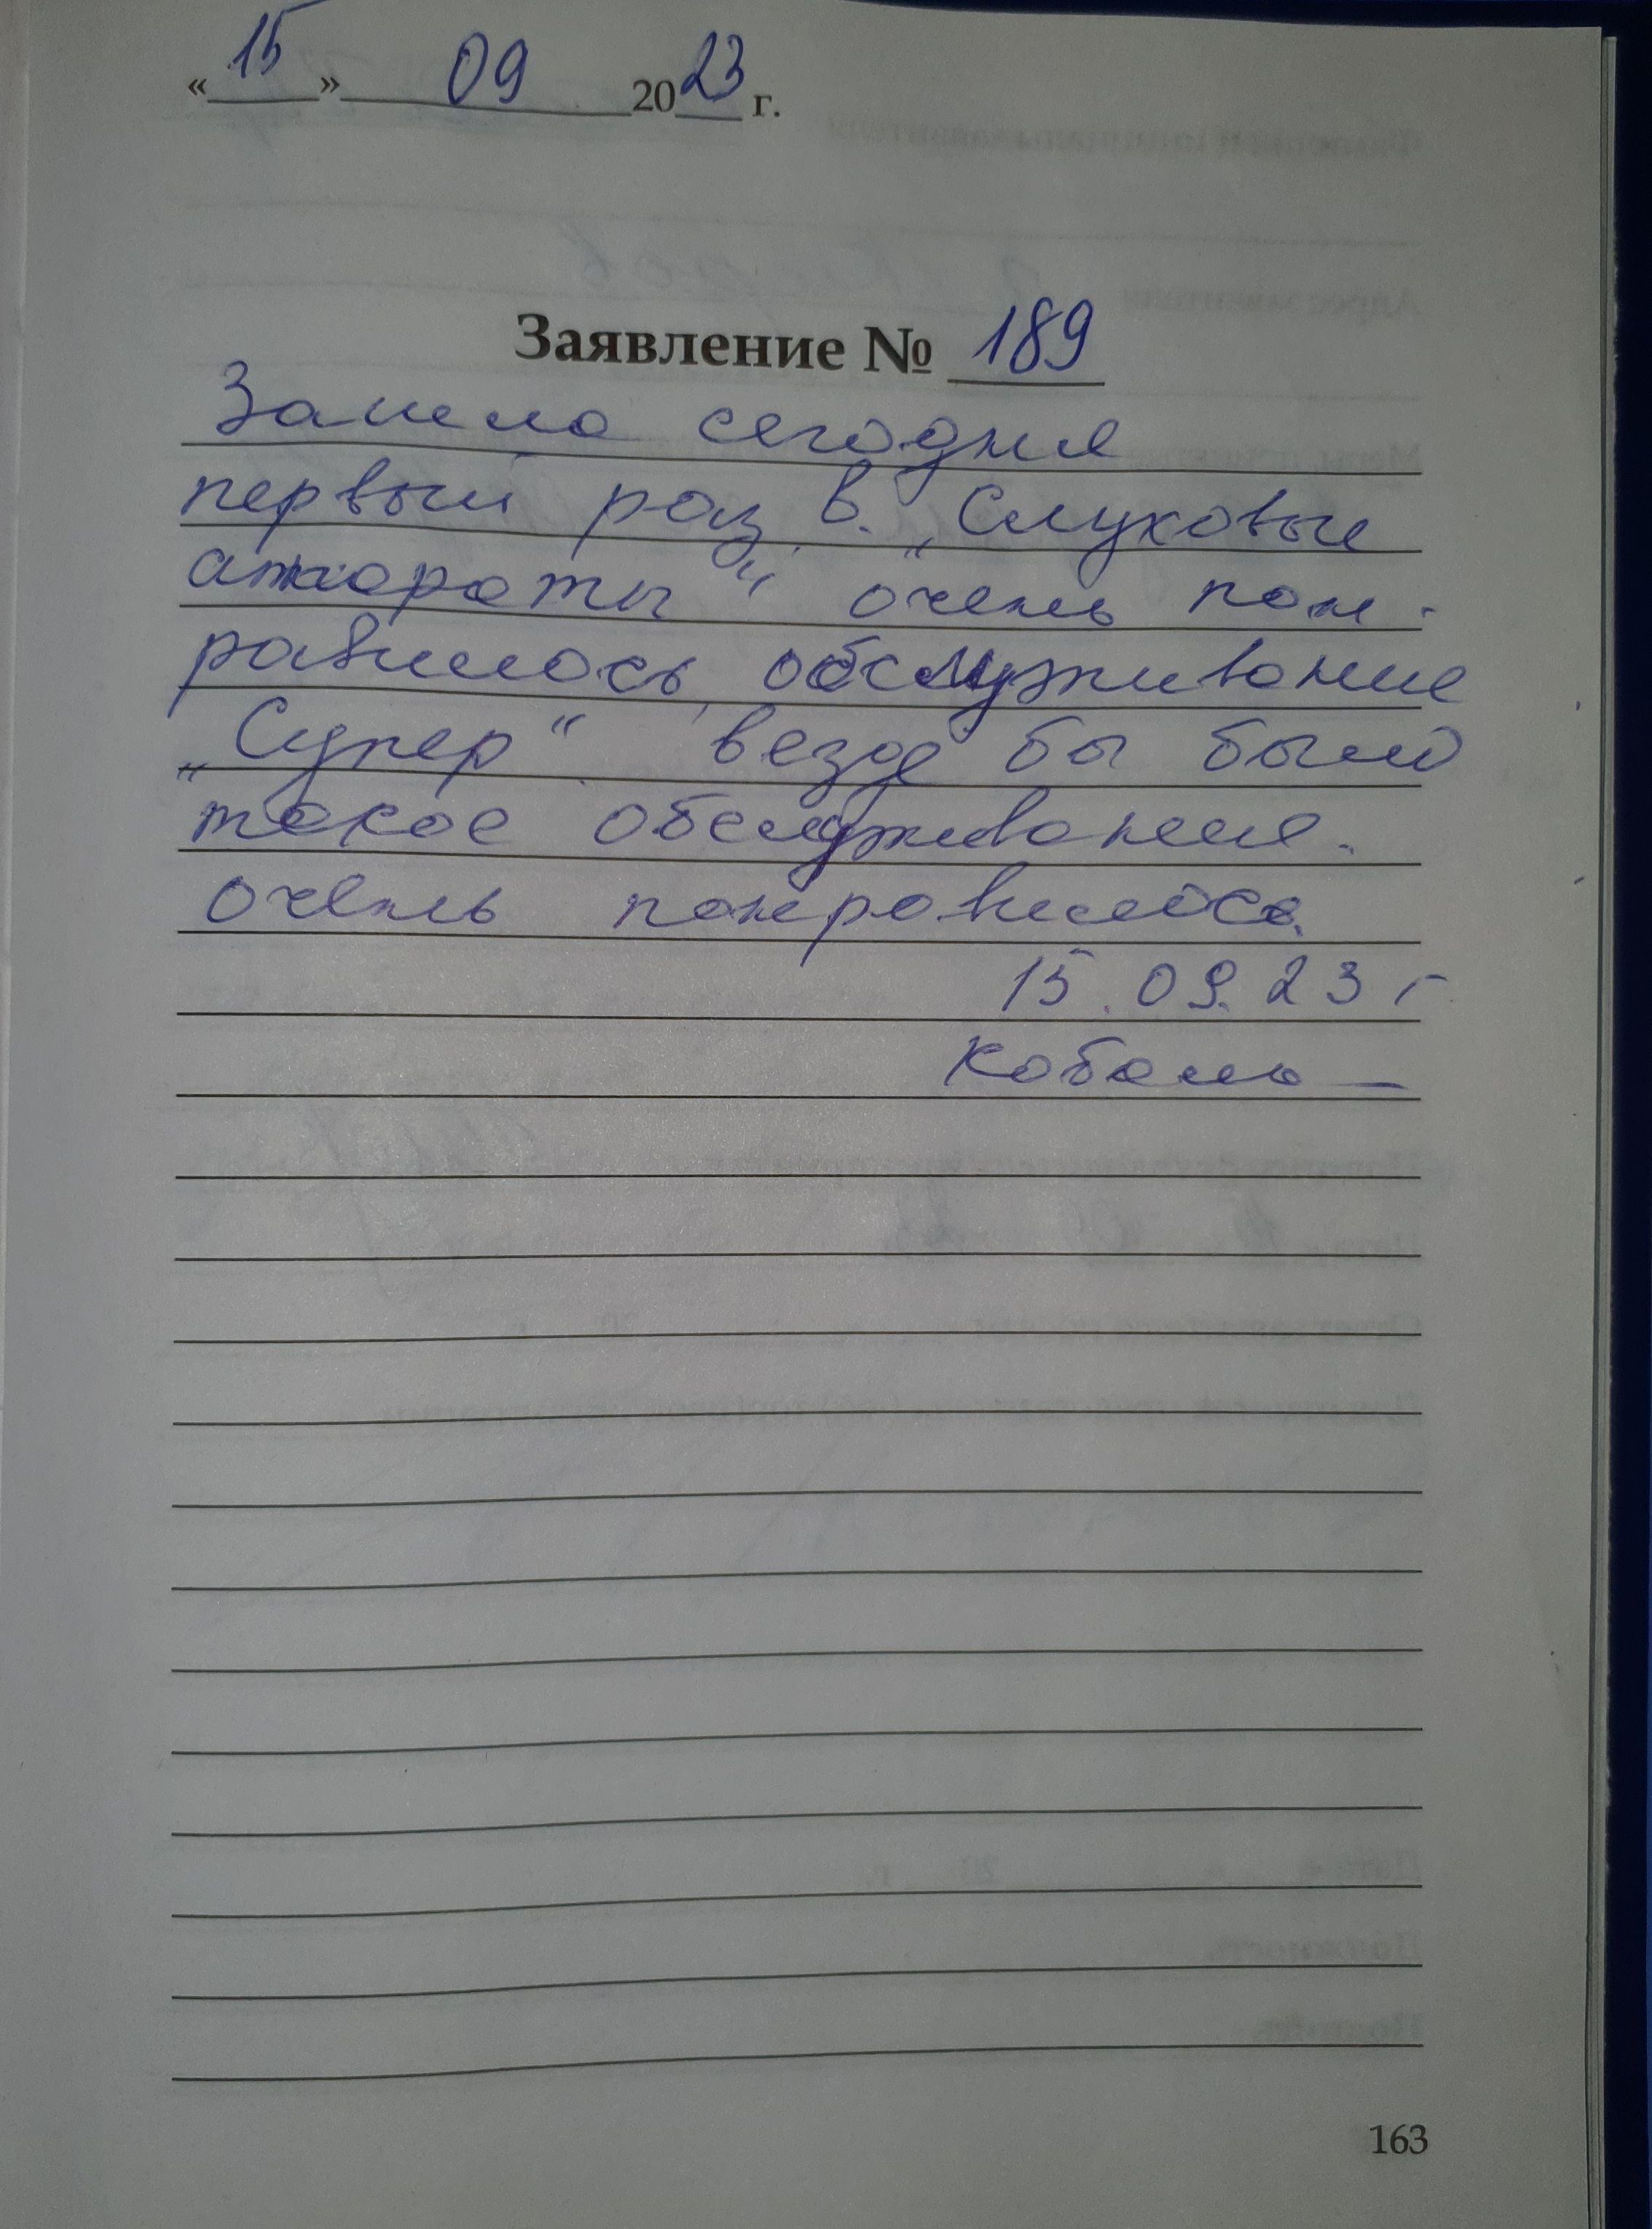 « 15 » 09 2023 г.
Заявление № 189
Зашла сегодня
первый раз в. „Слуховые
аппараты" очень пон-
равилось, обслуживание
„Супер" везде бы было
такое обслуживание.
очень понравилось.
15.09.23 г
Кобаль
163